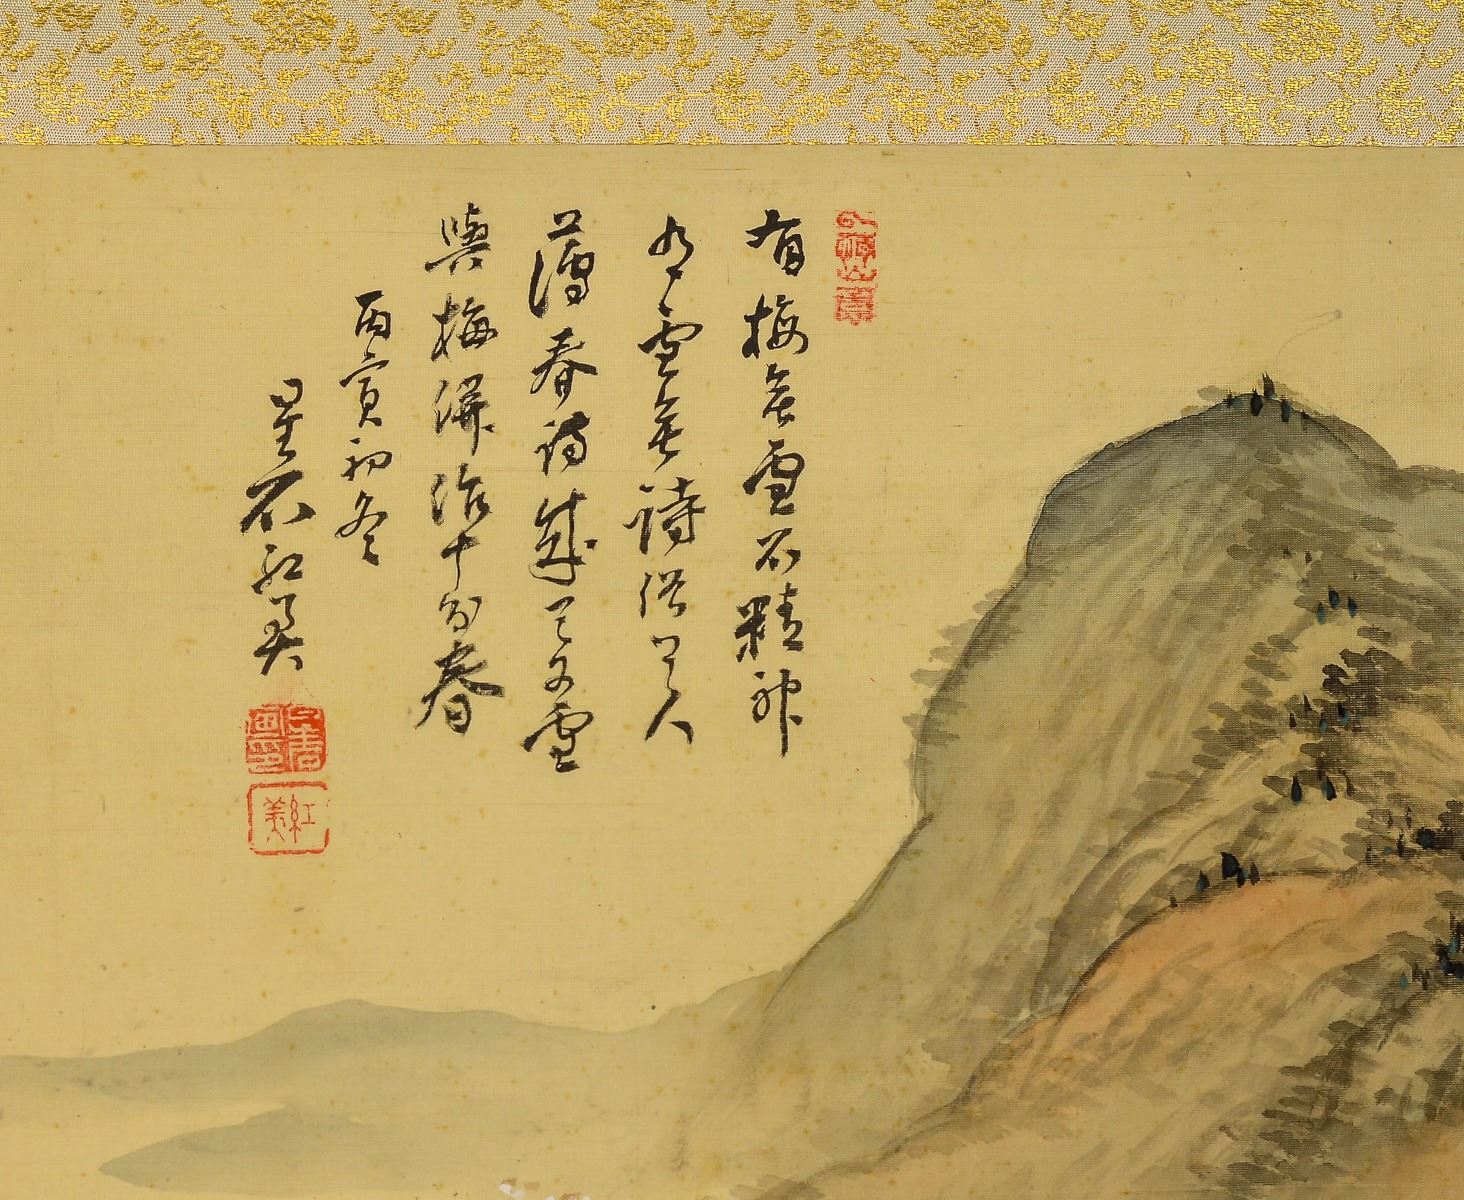 有梅無雪不精神
有雪無詩俗了人
薄暮詩成天又雪
與梅併作十分春
丙寅初冬
星石紅美
紅美